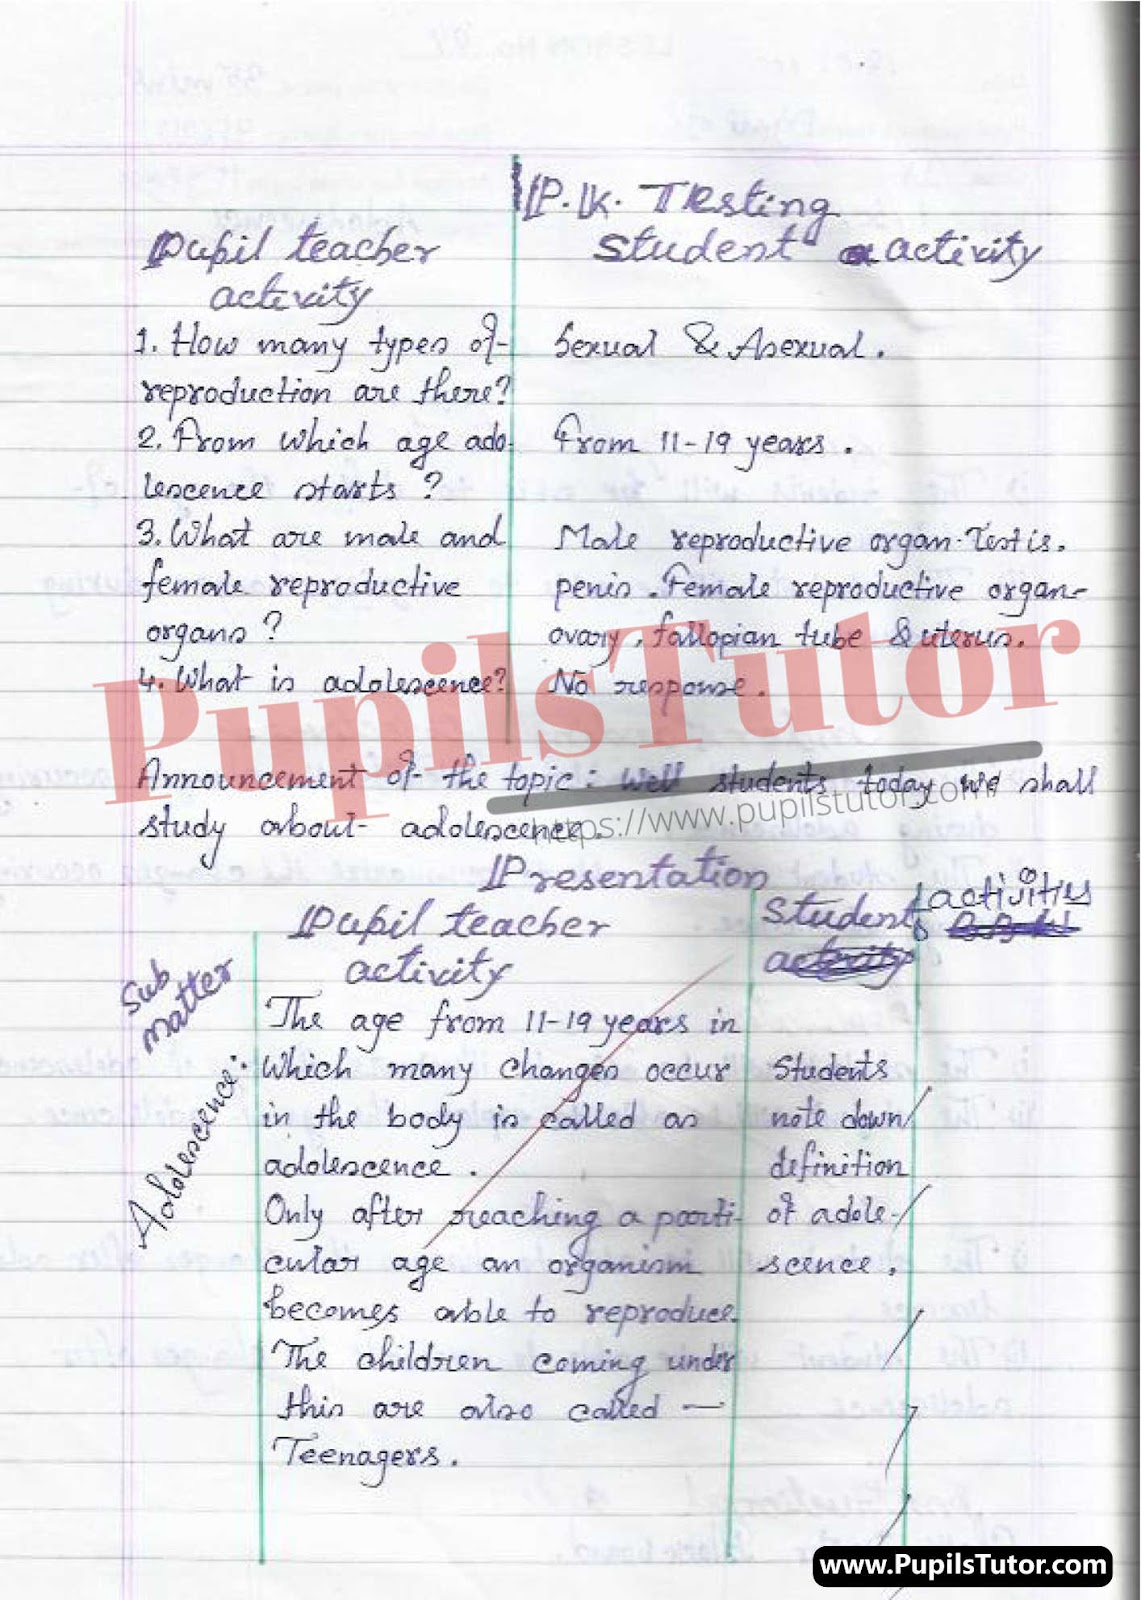 P.K. Testing
Pupil teacher
activity
student activity
1. How many types of
reproduction are there?
Sexual & Asexual.
2. From which age ado-
lescence starts ?
From 11-19 years.
3. What are male and
female reproductive
organs ?
Male reproductive organ. Testis.
penis. Female reproductive organ-
ovary, fallopian tube & uterus.
4. What is adolescence?
No response.
PupilsTutor
https://www.pupilstutor.com/
Announcement of the topic: Well students today we shall
study about adolescence.
Presentation
Sub
matter
Pupil teacher
activity
Student activities
Adolescence:
The age from 11-19 years in
which many changes occur
in the body is called as
adolescence.
Only after reaching a parti-
cular age an organism
becomes able to reproduce.
The children coming under
this are also called —
Teenagers.
Students
note down
definition
of adole-
scence.
www.PupilsTutor.com